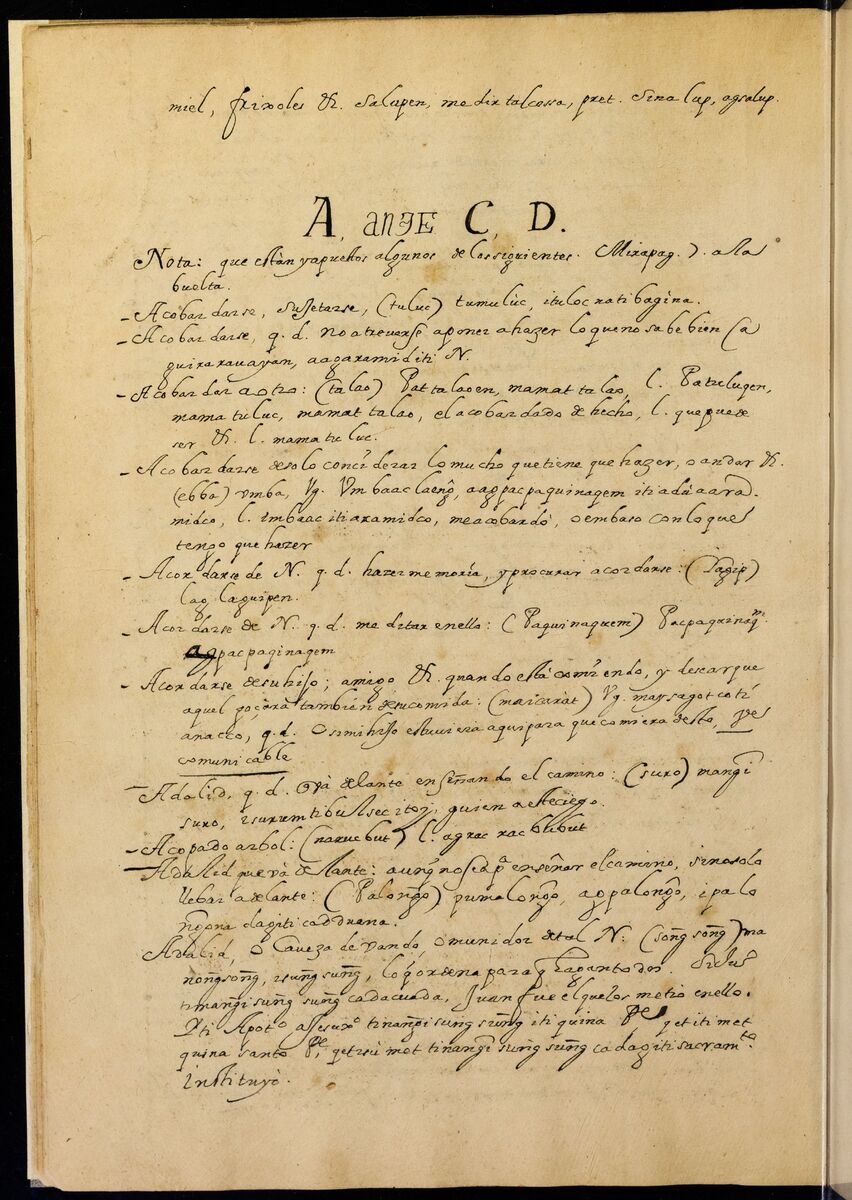 miel, frixoles &. Salupen, medir tal cossa, pret. Sinalup, agsalup.
A, ange C, D.
Nota: que estàn ya puestos algunos de los siguientes. Mira pag. 7. a la
buelta.
- Acobardarse, sujetarse, (tuluc) tumulùc, ituloc rati bagina.
- Acobardarse, q. d. no atreverse a poner a hazer lo que no sabe bien (a
guiraravayan, aagaramiditi N.
- Acobardar a otro: (talao) Pattalaoen, mamattalao, l. Patulugen,
mamatuluc, mamattalao, el acobardado de hecho, l. que puede
ser &. l. mamatuluc.
- Acobardarse de solo conciderar lo mucho que tiene que hazer, o andar &.
(ebba) umba, Vg. Vmbaac laeng, aagpacpaquinagem iti adu a ara-
midco, l. imbaac iti aramidco, me acobardò, o embaso con lo que
tengo que hazer
- Acordarse de N. q. d. hazer memoria, y procurar acordarse: (Lagip)
lag laguipen.
- Acordarse de N. q. d. meditar en ello: (Paquinaquem)
agpacpaginagem
- Acordarse de su hijo; amigo &. quando està comiendo, y desear que
aquel goçara tambièn de su comida: (maicaràt) Vg. maysagot coti
anacco, q. d. O si mi hijo estuviera aqui para que comiera desto,
comunicable
- Adalid, q. d. và delante enseñando el camino: (suro) mangi
suro, isurum ti bulsec itoy, guien a este ciego.
- Acopado arbol: (naruebut) l. agrac racbubut
- Adalid que và delante: aunq no sea pª enseñar el camino, sino solo
llebar adelante: (Palongo) pumalongo, agpalongo, ipalo
ngona dagiti cadduana.
Adalid, o Caveza de vando, o munidor de tal N: (song song) ma
nongsong, isung sung, lo q ordena para q hagan todos. Si Jun
ti mangisung sung cadacuada, Juan fue el que los metio en ello.
ti Apotº a Jesuxº tinangisung sung iti quina Pe, qet iti met
quina santo Pe, qet isu met tinangi sung sung cadagiti sacramtº
instituyò.